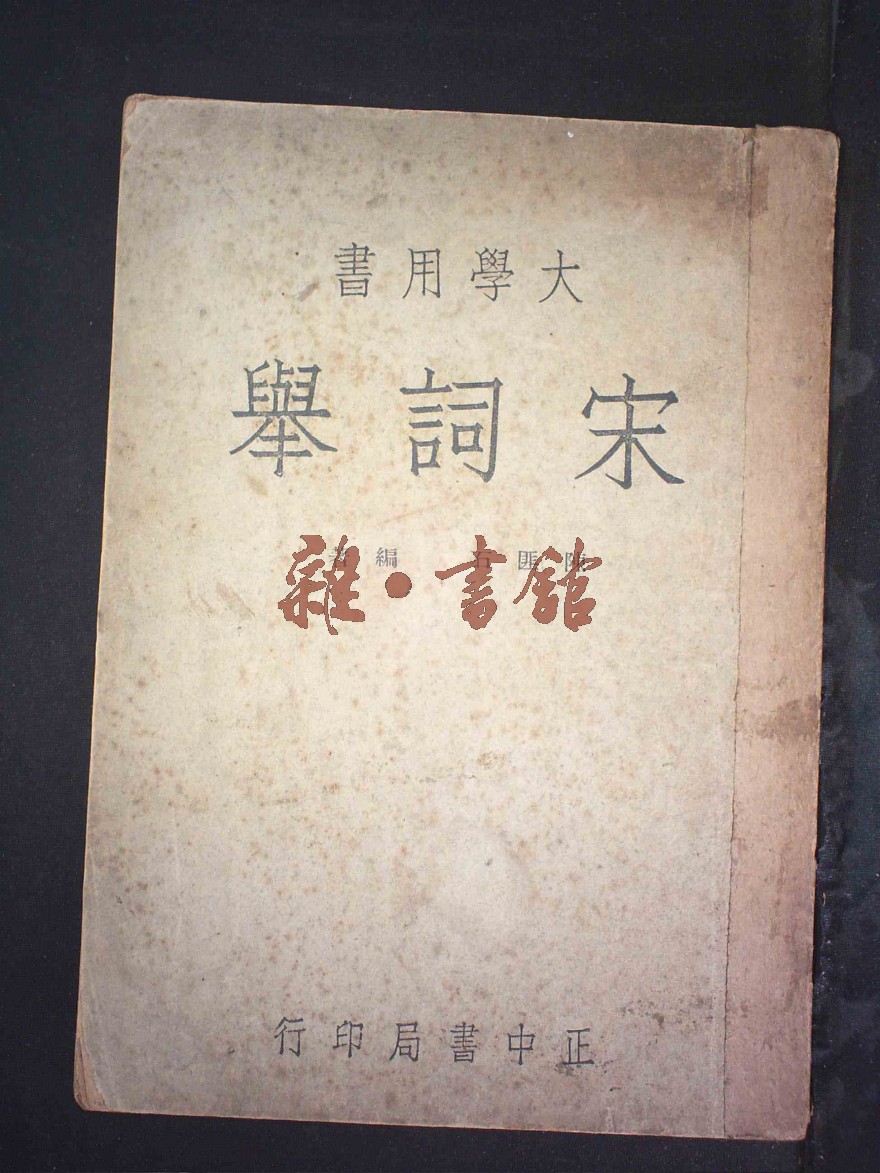 大學用書
宋詞舉
陳匪石 編著
雜·書館
正中書局印行